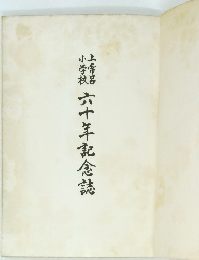 上常呂
小学校
六十年記念誌